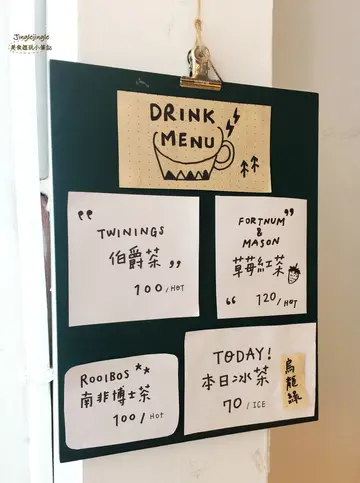 Jinglejingle
美食遊玩小筆記
DRINK
MENU
"
TWININGS
伯爵茶
"
100/HOT
FORTNUM "
&
MASON
草莓紅茶
" 120/HOT
ROOIBOS **
南非博士茶
100/HOT
TODAY!
本日冰茶
70/ICE
烏龍綠